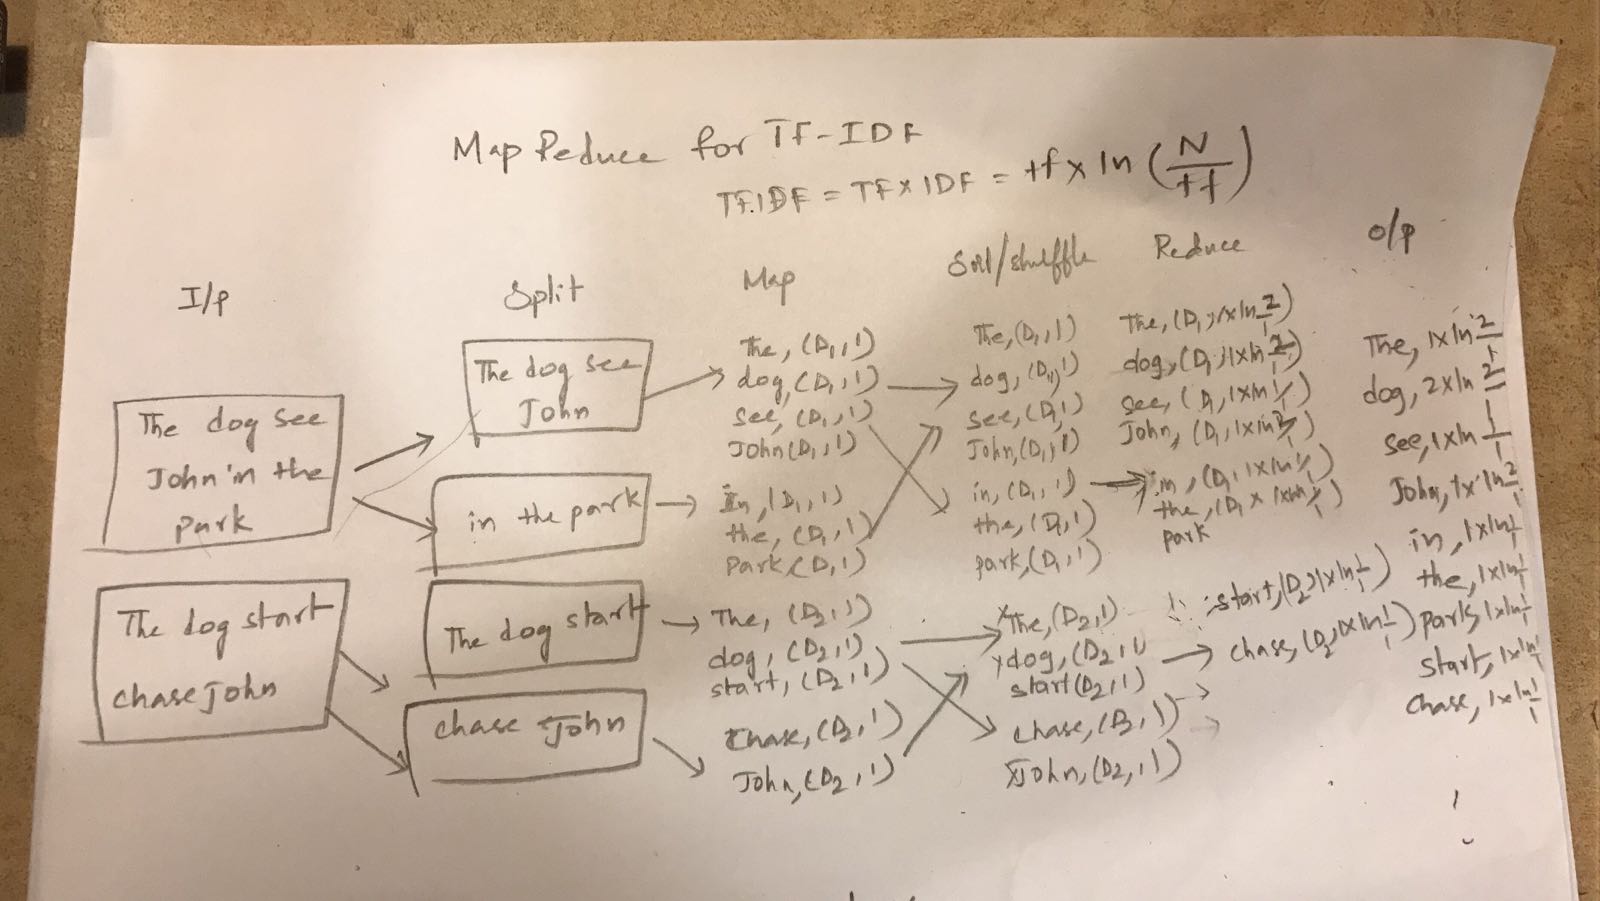 Map Reduce for TF-IDF
TF.IDF = TF x IDF = tf x ln (N/tf)
I/p
Split
Map
Sort/shuffle
Reduce
o/p
The dog see
John in the
park
The dog start
chase John
The dog see
John
in the park
The dog start
chase John
The, (D1,1)
dog, (D1,1)
see, (D1,1)
John (D1,1)
in, (D1,1)
the, (D1,1)
Park, (D1,1)
The, (D2,1)
dog, (D2,1)
start, (D2,1)
Chase, (D2,1)
John, (D2,1)
The, (D1,1)
dog, (D1,1)
see, (D1,1)
John, (D1,1)
in, (D1,1)
the, (D1,1)
park, (D1,1)
x The, (D2,1)
x dog, (D2,1)
start (D2,1)
chase, (D2,1)
x John, (D2,1)
The, (D1, 1x ln 2/1)
dog, (D1, 1x ln 2/1)
see, (D1, 1x ln 1/1)
John, (D1, 1x ln 2/1)
in, (D1, 1x ln 1/1)
the, (D1 x 1x ln 1/1)
park
start, (D2, 1x ln 1/1)
chase, (D2, 1x ln 1/1)
The, 1x ln 2/1
dog, 2x ln 2/1
see, 1x ln 1/1
John, 1x ln 2/1
in, 1x ln 1/1
the, 1x ln 1/1
park, 1x ln 1/1
start, 1x ln 1/1
chase, 1x ln 1/1